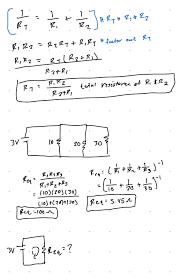 [1/R_T = 1/R_1 + 1/R_2] * R_T * R_1 * R_2
R_1 R_2 = R_2 R_T + R_1 R_T *factor out R_T
R_1 R_2 = R_T (R_2 + R_1)
R_2 + R_1
R_T = R_1 R_2 / R_2 + R_1 total resistance of R_1 & R_2
3V 10 20 30
R_eq = R_1 R_2 R_3 / R_1 + R_2 + R_3
= (10)(20)(30) / (10)+(20)+(30)
R_eq = 100 Ω
R_eq = (1/R_1 + 1/R_2 + 1/R_3)^-1
= (1/10 + 1/20 + 1/30)^-1
R_eq = 5.45 Ω
3V R_eq = ?